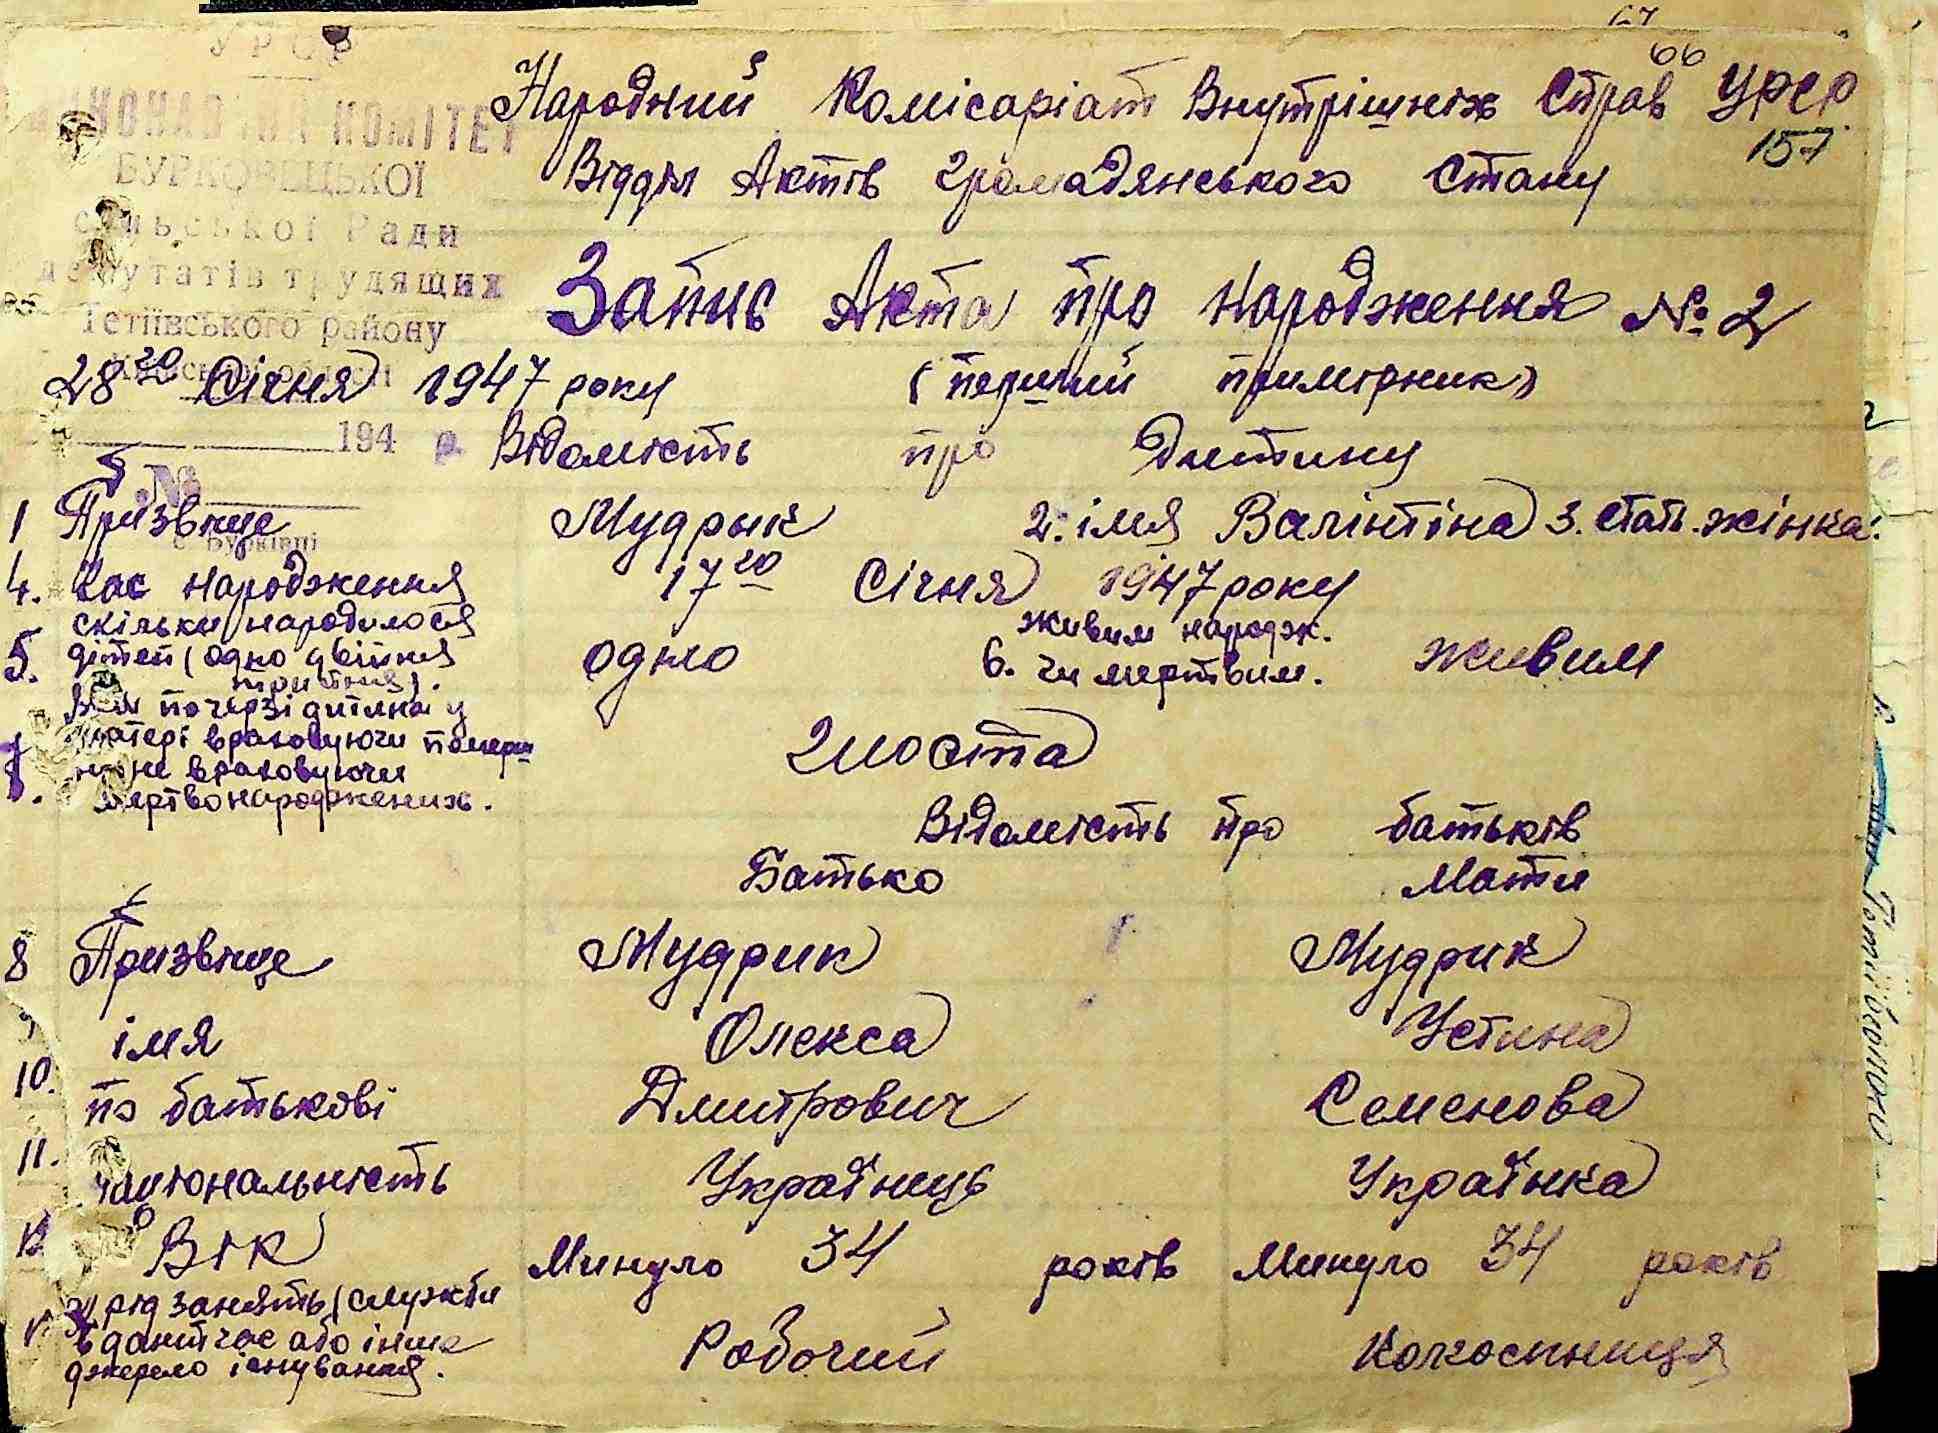 УРСР
67
66
157
ВИКОНАВЧИЙ КОМІТЕТ
БУРКОВЕЦЬКОЇ
сільської Ради
депутатів трудящих
Тетіївського району
Київської області
194 р.
№
с. Бурківці
Народний Комісаріат Внутрішніх Справ УРСР
Відділ Актів громадянського стану
Запис Акта про народження № 2
28го Січня 1947 року (перший примірник)
Відомість про дитину
1 Призвіще Мудрык 2. імя Валінтіна 3. стать. жінка.
4. Час народження 17го Січня 1947 року
5. скільки народилося дітей (одно двійня тройня). одно 6. живим народж. чи мертвим. живим
7. яка по черзі дитина у
матері враховуючи померш
не враховуючи
мертвонароджених. шоста
Відомість про батьків
Батько Мати
8 Призвіще Мудрик Мудрик
імя Олекса Устина
10. по батькові Дмитрович Семенова
11. національність Українець Українка
12 Вік Минуло 34 років Минуло 34 років
рід занять (служби
в даний час або інше
джерело існування. Робочий Колгоспниця